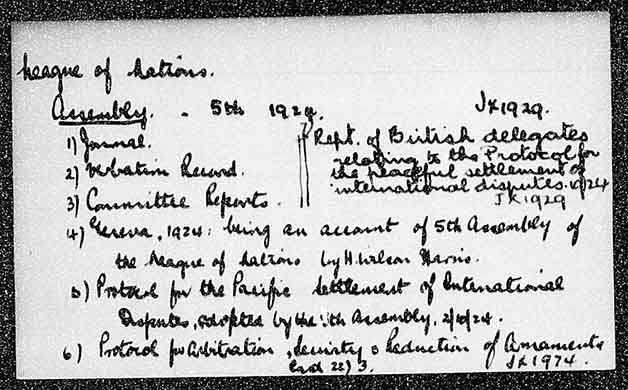 League of Nations.
Assembly. - 5th 1924. JX1929.
1) Journal.
2) Verbatim Record.
3) Committee Reports.
Rept. of British delegates
relating to the Protocol for
the peaceful settlement of
international disputes. 1924
JX1929
4) Geneva, 1924: being an account of 5th Assembly of
the League of Nations by H. Wilson Harris.
5) Protocol for the Pacific Settlement of International
Disputes, adopted by the 5th Assembly, 2/10/24.
6) Protocol for Arbitration, Security & Reduction of Armaments
JX1974.
Card 22) 3.